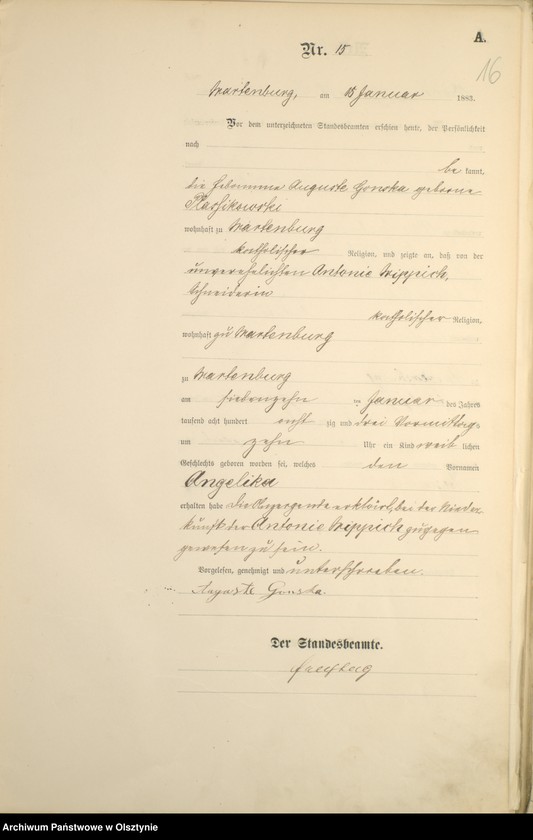 A.
Nr. 15
16
Wartenburg, am 18 Januar 1883.
Vor dem unterzeichneten Standesbeamten erschien heute, der Persönlichkeit
nach
be kannt,
die Hebamme Auguste Gonska geborene
wohnhaft zu Wartenburg
katholischer Religion, und zeigte an, daß von der
unverehelichten Antonie Wippich,
Schneiderin
katholischer Religion,
wohnhaft zu Wartenburg
zu Wartenburg
am siebenzehn ten Januar des Jahres
tausend acht hundert acht zig und drei Vormittags
um zehn Uhr ein Kind weib lichen
Geschlechts geboren worden sei, welches den Vornamen
Angelika
erhalten habe die Anzeigende erklärt, bei der Nieder
kunft der Antonie Wippich zugegen
gewesen zu sein.
Vorgelesen, genehmigt und unterschrieben.
Auguste Gonska
Der Standesbeamte.
Archiwum Państwowe w Olsztynie